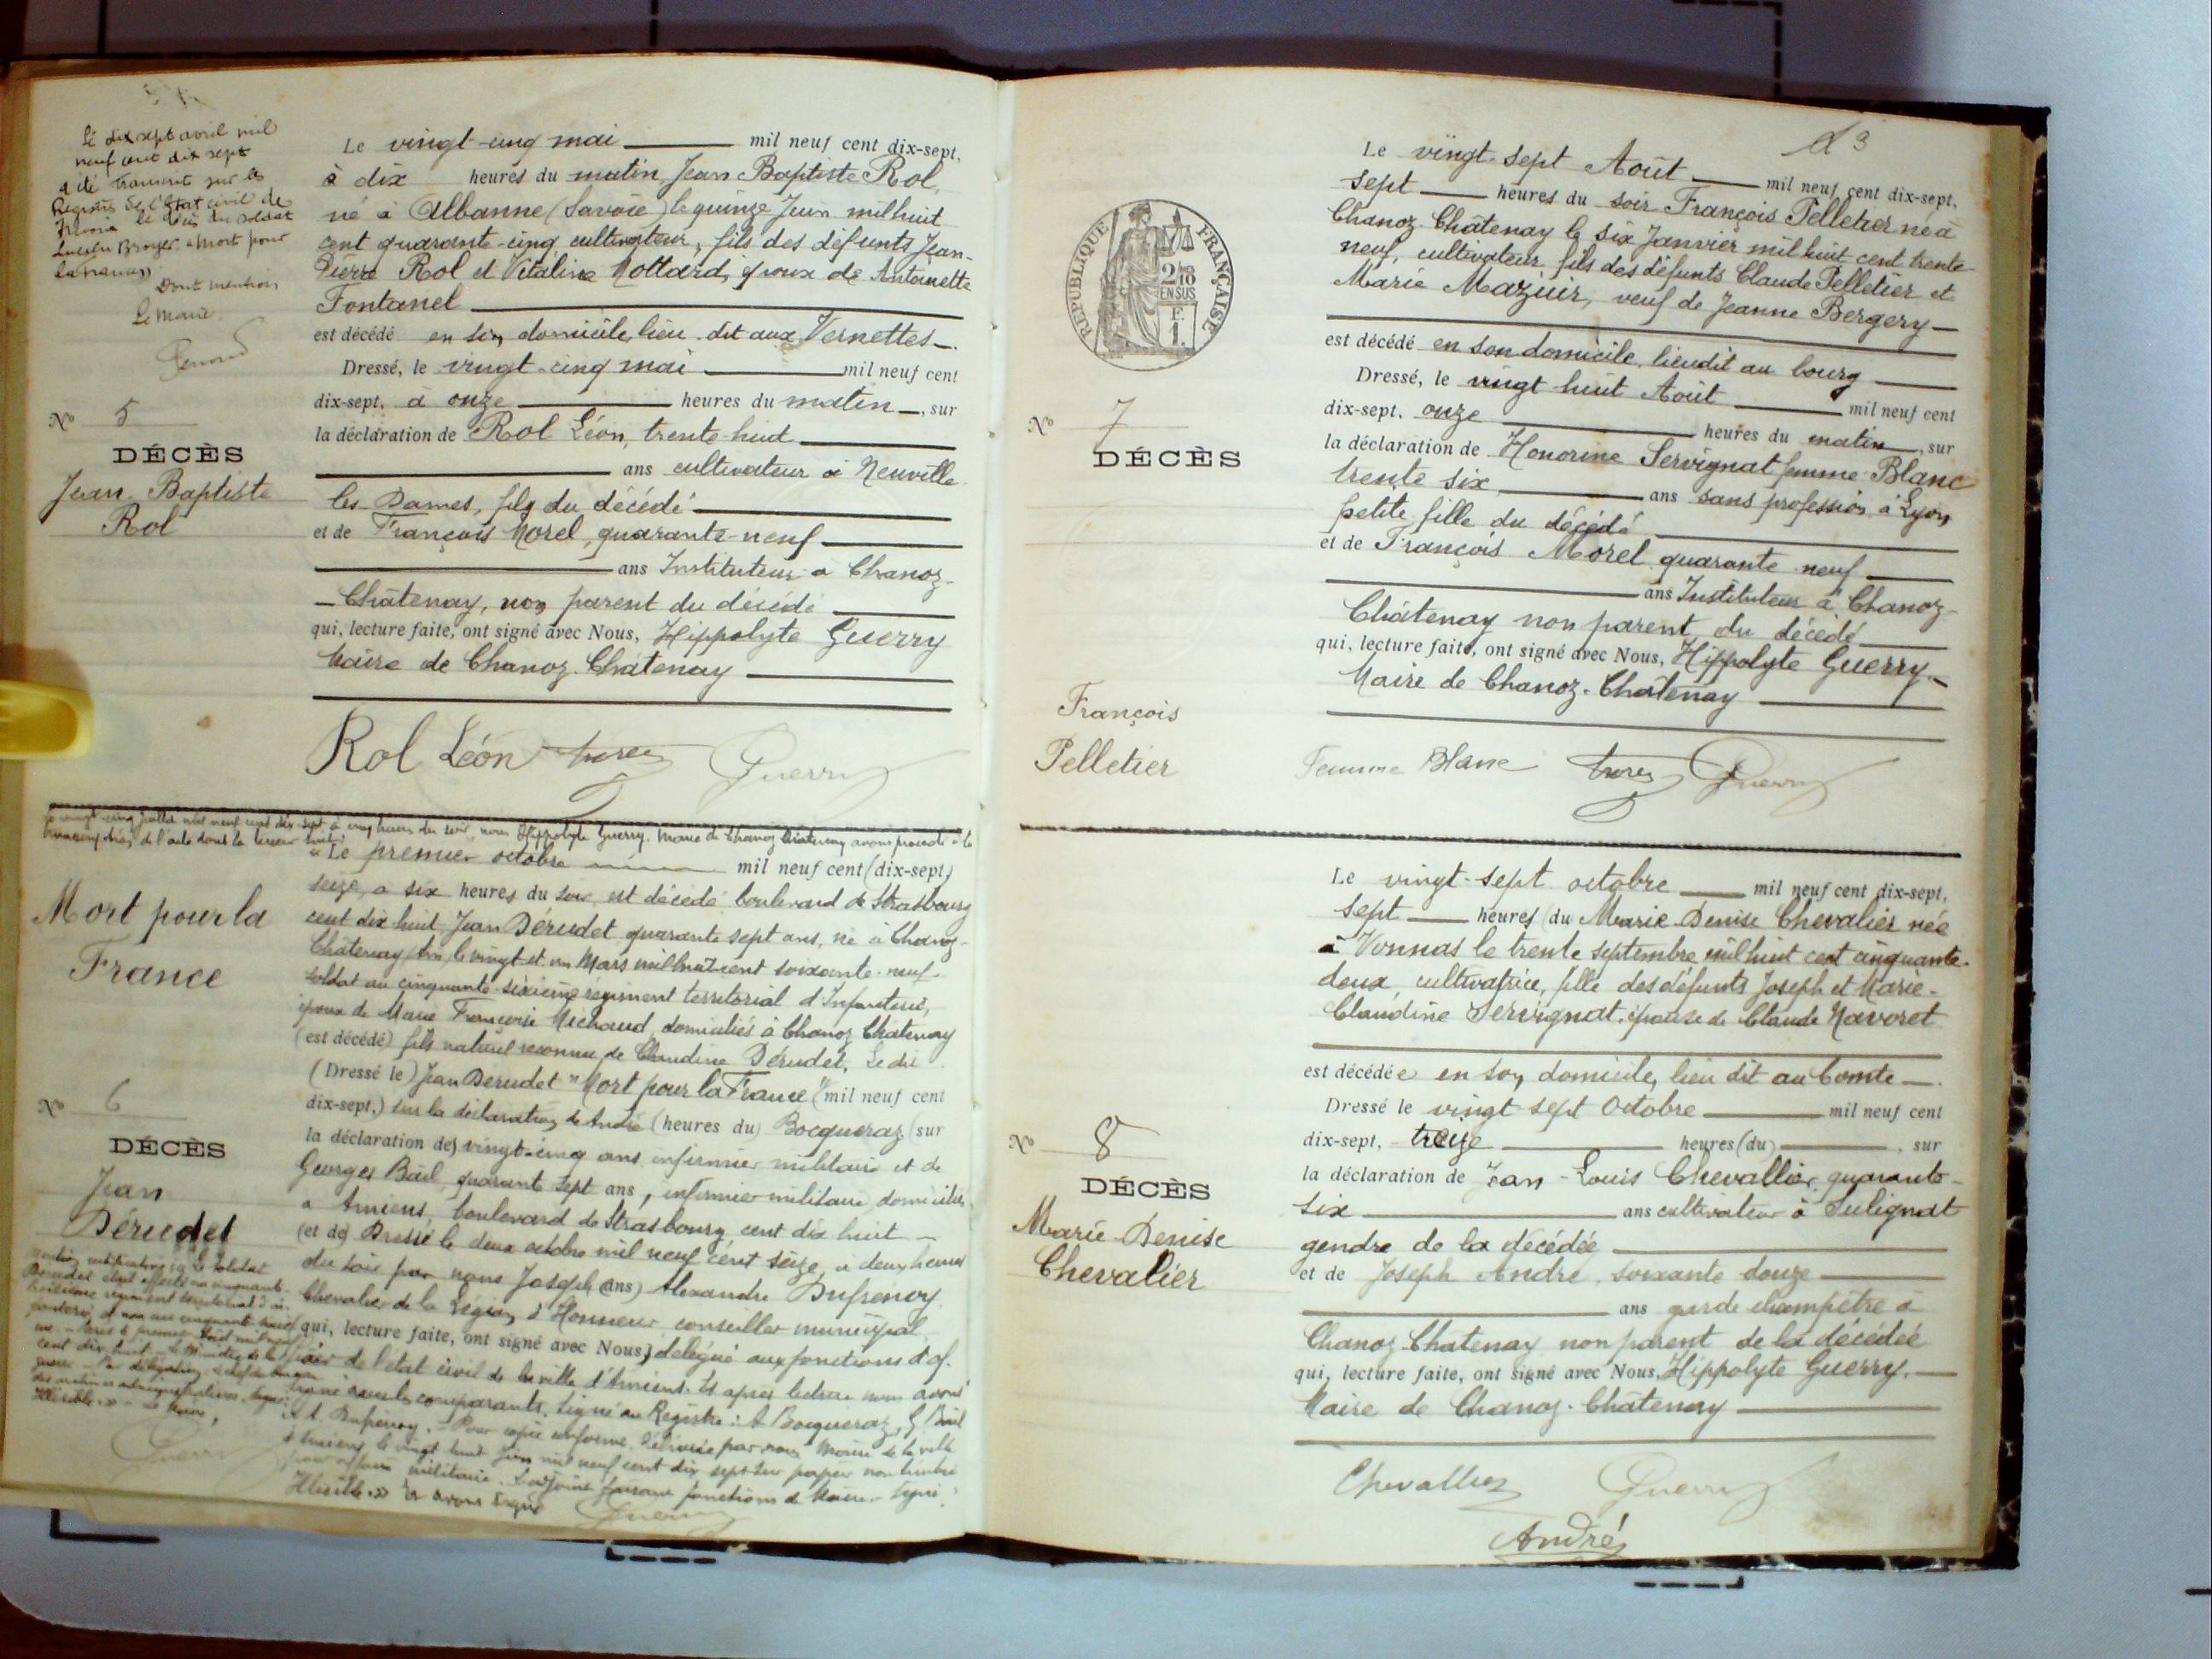 Le dix sept avril mil
neuf cent dix sept
a été transcrit sur les
Registres de l'état civil de
le décès du soldat
Broyer "Mort pour
la France"
Dont mention
Le Maire
Le vingt-cinq mai mil neuf cent dix-sept,
à dix heures du matin, Jean Baptiste Rol,
né à Albanne (Savoie) le quinze Juin mil huit
cent quarante-cinq cultivateur, fils des défunts Jean-
Pierre Rol et Vitaline Mottard, époux de Antoinette
Fontanel
est décédé en son domicile, lieu dit aux Vernettes.
Dressé, le vingt-cinq mai mil neuf cent
dix-sept, à onze heures du matin, sur
la déclaration de Rol Léon, trente-huit
ans cultivateur à Neuville
les Dames, fils du décédé
et de François Morel, quarante-neuf
ans Instituteur à Chanoz-
Châtenay, non parent du décédé
qui, lecture faite, ont signé avec Nous, Hippolyte Guerry
Maire de Chanoz-Châtenay
Nº 5
DÉCÈS
Jean-Baptiste
Rol
Rol Léon Morel Guerry
Le vingt-cinq juillet mil neuf cent dix-sept à cinq heures du soir, nous Hippolyte Guerry, Maire de Chanoz Châtenay avons procédé à la
transcription de l'acte dont la teneur suit:
"Le premier octobre mil neuf cent (dix-sept)
seize, à six heures du soir, est décédé boulevard de Strasbourg
cent dix huit, Jean Dérudet quarante sept ans, né à Chanoz-
Châtenay, Ain, le vingt et un Mars mil huit cent soixante-neuf
soldat au cinquante-sixième régiment territorial d'Infanterie,
époux de Marie Françoise Michaud, domiciliés à Chanoz Châtenay
(est décédé) fils naturel reconnu de Claudine Dérudet, Le dit
(Dressé le) Jean Dérudet "Mort pour la France" (mil neuf cent
dix-sept,) Sur la déclaration de André (heures du) Bocqueraz (sur
la déclaration de) vingt-cinq ans infirmier militaire et de
Georges Bail, quarante sept ans, infirmier militaire, domiciliés
à Amiens, boulevard de Strasbourg cent dix huit
(et de) Dressé le deux octobre mil neuf cent seize, à deux heures
du soir par nous Joseph (ans) Alexandre Dufrenoy
Chevalier de la Légion d'Honneur conseiller municipal
qui, lecture faite, ont signé avec Nous,) délégué aux fonctions d'of-
ficier de l'état civil de la ville d'Amiens. Et après lecture nous avons
signé avec les comparants. Signé au Registre: A Bocqueraz, G. Bail
A. Dufrenoy. Pour copie conforme, délivrée par nous Maire de la ville
d'Amiens le vingt huit juin mil neuf cent dix sept sur papier non timbré
pour affaire militaire. L'adjoint faisant fonctions de Maire. Signé:
Illisible.» Et avons signé
Guerry
Mort pour la
France
Nº 6
DÉCÈS
Jean
Dérudet
Mention rectificative: Le soldat
Dérudet était affecté au cinquante-
régiment territorial d'in-
fanterie, et non au cinquante-
Paris le premier Août mil neuf
cent dix huit. Le Ministre de la
guerre. Par délégation, le chef de bureau
des archives administratives. Signé:
Illisible.» Le Maire,
Guerry
3
RÉPUBLIQUE FRANÇAISE
EN SUS
F.
1.
Le vingt-sept Août mil neuf cent dix-sept,
sept heures du soir François Pelletier né à
Chanoz-Châtenay le six Janvier mil huit cent trente-
neuf, cultivateur, fils des défunts Claude Pelletier et
Marie Mazuir, veuf de Jeanne Bergery
est décédé en son domicile, lieu dit au bourg
Dressé, le vingt huit Août mil neuf cent
dix-sept, onze heures du matin, sur
la déclaration de Honorine Servignat femme Blanc
trente six ans sans profession à Lyon
petite fille du décédé
et de François Morel quarante-neuf
ans Instituteur à Chanoz-
Châtenay non parent du décédé
qui, lecture faite, ont signé avec Nous, Hippolyte Guerry
Maire de Chanoz-Châtenay
Nº 7
DÉCÈS
François
Pelletier
Femme Blanc Morel Guerry
Le vingt-sept octobre mil neuf cent dix-sept,
sept heures (du) Marie Denise Chevalier née
à Vonnas le trente septembre mil huit cent cinquante-
deux cultivatrice, fille des défunts Joseph et Marie-
Claudine Servignat, épouse de Claude Navoret
est décédée en son domicile, lieu dit au Comte
Dressé le vingt-sept Octobre mil neuf cent
dix-sept, treize heures (du), sur
la déclaration de Jean-Louis Chevallier, quarante-
six ans cultivateur à Sulignat
gendre de la décédée
et de Joseph André, soixante douze
ans garde champêtre à
Chanoz Chatenay non parent de la décédée
qui, lecture faite, ont signé avec Nous, Hippolyte Guerry,
Maire de Chanoz-Châtenay
Nº 8
DÉCÈS
Marie-Denise
Chevalier
Chevallier Guerry
André